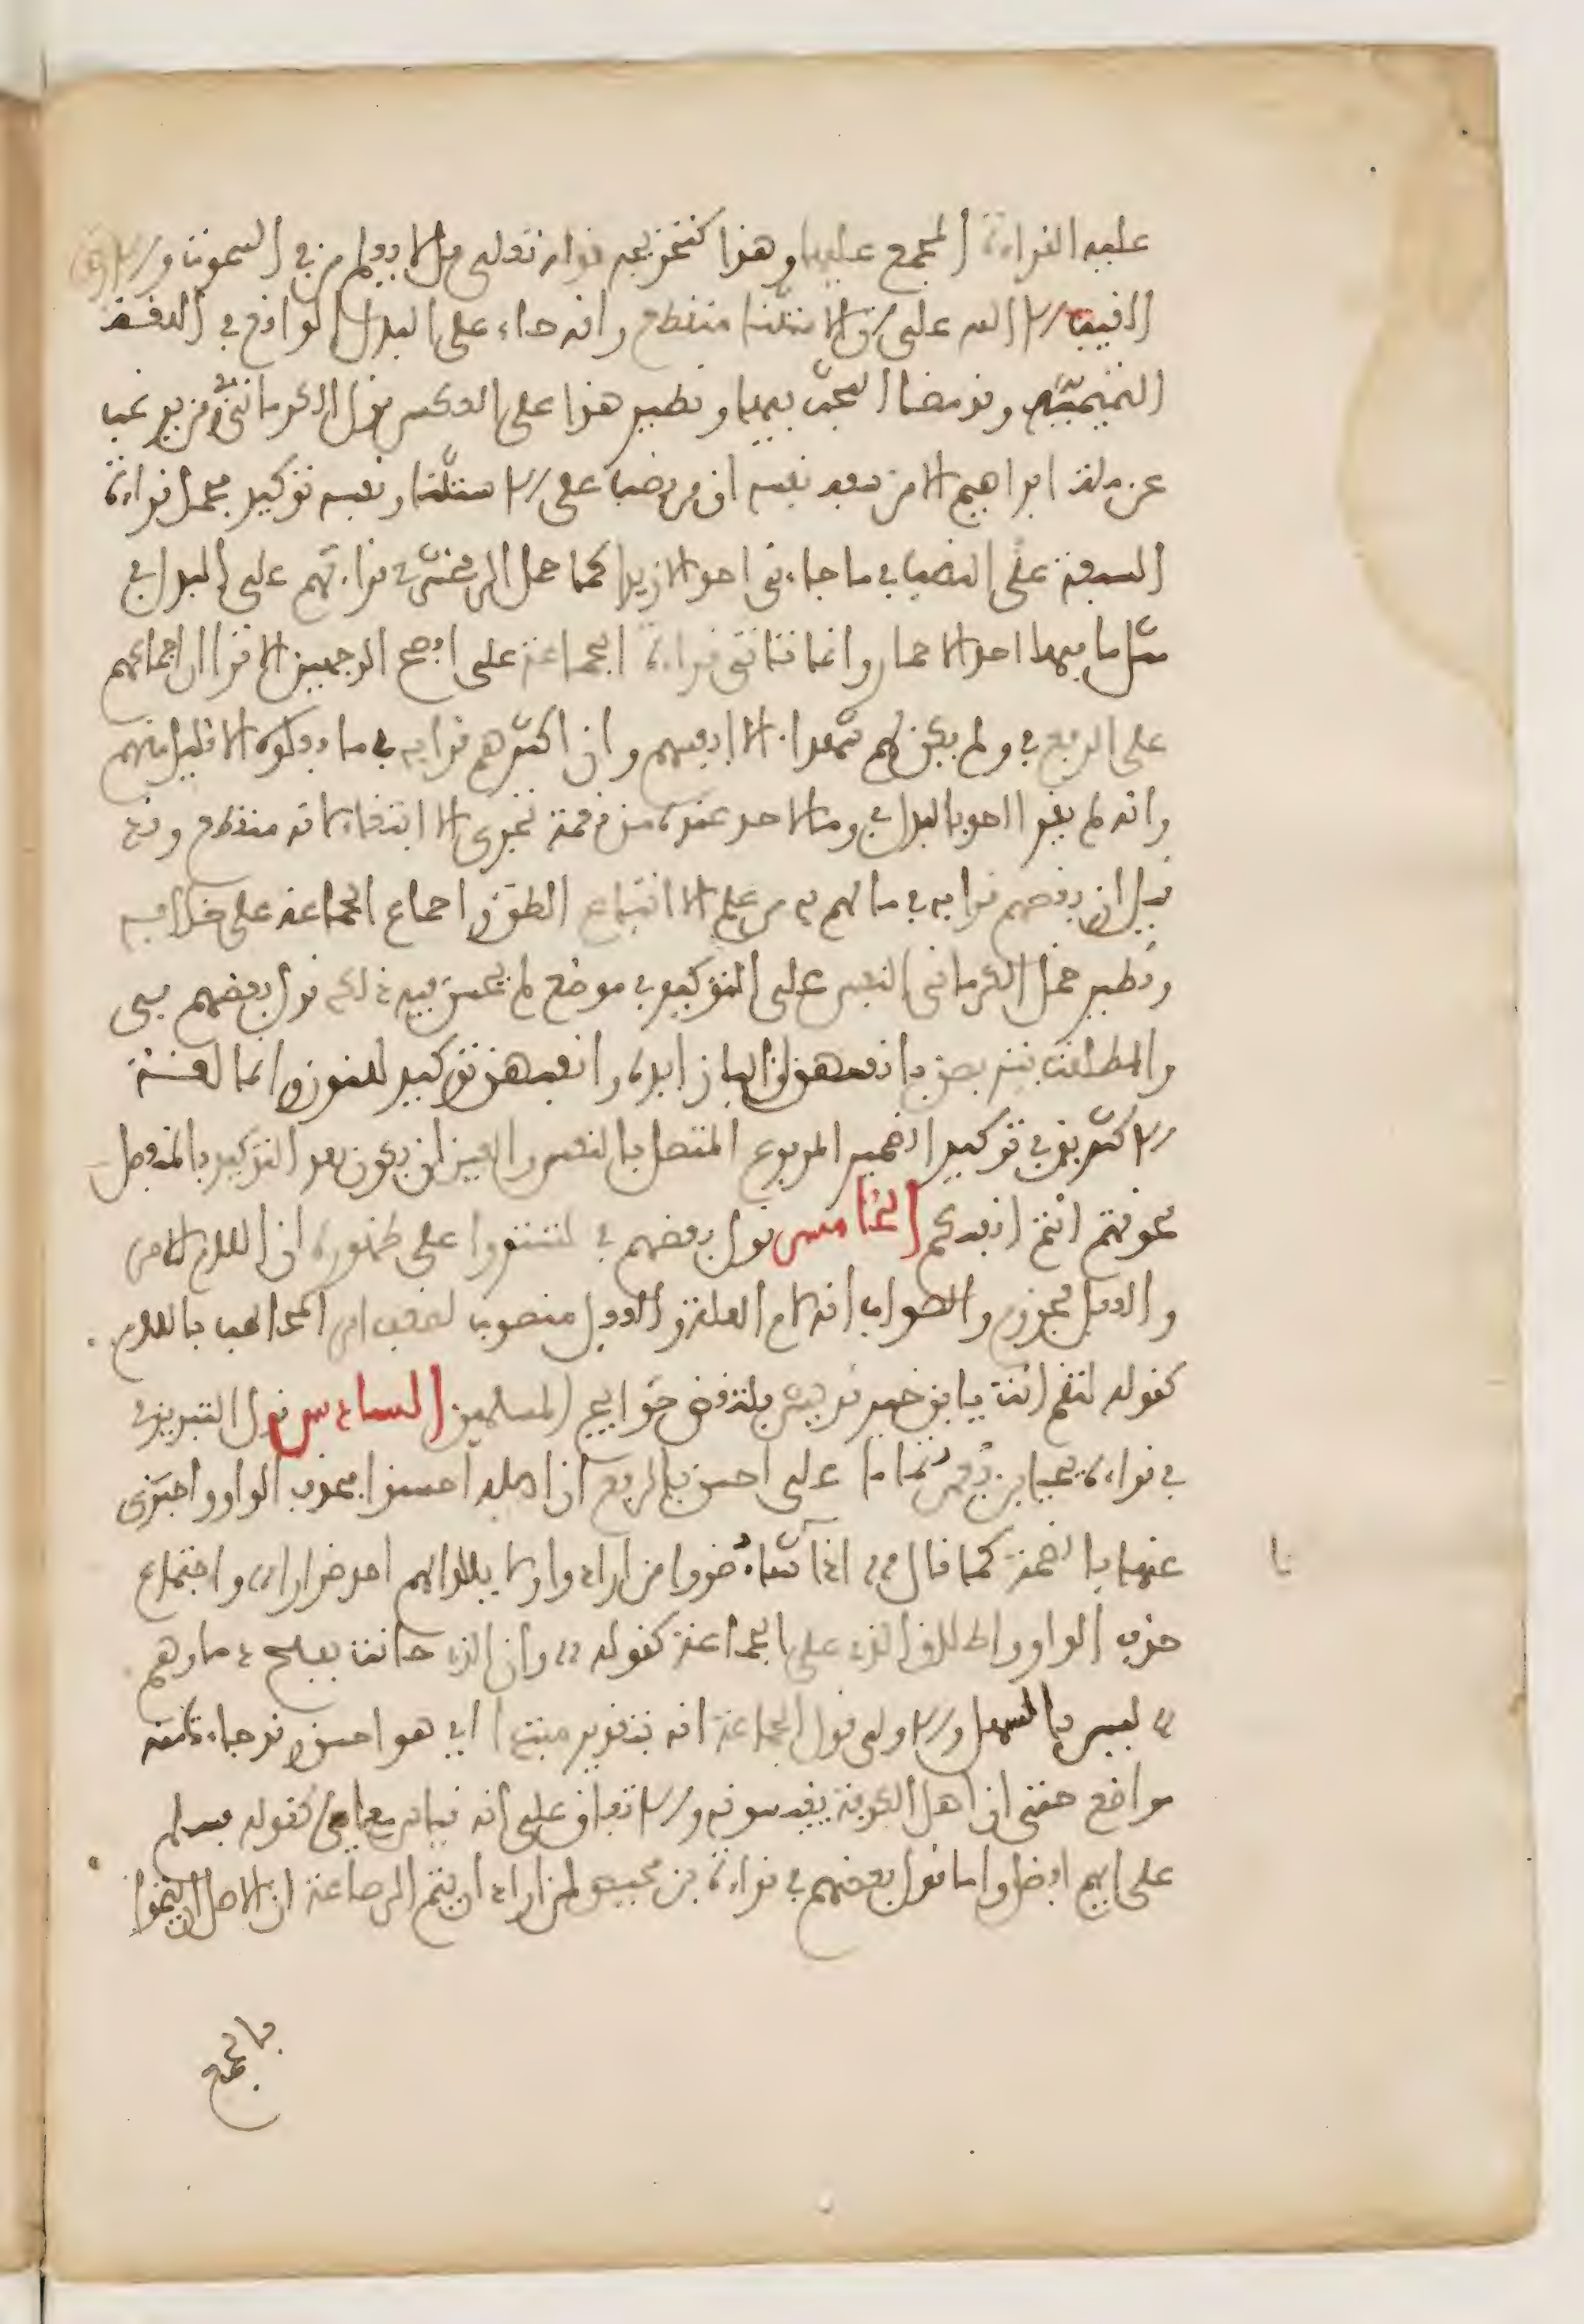 عليه القراءة المجمع عليها وهذا كتخريجه قوله تعلى قل لا يعلم من في السموت و الارض
الغيب الا الله على ان الاستثناء منقطع وانه جاء على البدل الواقع في اللغة
التميمية وقد مضا البحث فيها ونظير هذا على العكس قول الكرماني في ومن يرغب
عن ملة ابراهيم الا من سفه نفسه ان من نصب على الاستثناء ونفسه توكيد فحمل قراءة
السبعة على النصب في ما جاءني احد الا زيدا كما حمل الزمخشري قراءتهم على البدل في
مثل ما فيها احد الا حمار وانما تاتي قراءة الجماعة على افصح الوجهين الا ترا الى اجماعهم
على الرفع في ولم يكن لهم شهداء الا انفسهم وان اكثرهم قرا به في ما فعلوه الا قليل منهم
وانه لم يقرا احد بالبدل في وما لاحد عنده من نعمة تجزى الا ابتغاء لانه منقطع وقد
قيل ان بعضهم قرا به في ما لهم به من علم الا اتباع الظن واجماع الجماعة على خلافه
ونظير حمل الكرماني النفس على التوكيد في موضع لم يحسن فيه ذلك قول بعضهم في
والمطلقت يتربصن بانفسهن ان البا زايدة وانفسهن توكيد للنون وانما لغة
الاكثرين في توكيد الضمير المرفوع المتصل بالنفس والعين ان يكون بعد التوكيد بالمنفصل
نحو قمتم انتم انفسكم الخامس قول بعضهم في لتستووا على ظهوره ان اللام للامر
والفعل مجزوم والصواب انه لام العلة والفعل منصوب لضعف امر المخاطب باللام
كقوله لتقم انت يا بن خير قريش فلتقضي حوايج المسلمين السادس قول التبريزي
في قراءة يحيا بن يعمر تماما على احسن بالرفع ان اصله احسنوا فحذف الواو واجتزى
عنها بالضمة كما قال اذا شاء ضروا من ارادوا ولا يالوهم احد ضرارا واجتماع
حذف الواو واطلاق الذي على الجماعة كقوله وان الذي حانت بفلج دماوهم
ليس بالسهل والاولى قول الجماعة انه بتقدير مبتدا اي هو احسن وقد جاءت منه
مواضع حتى ان اهل الكوفة يقيسونه والاتفاق على انه قياس مع اي كقوله فسلم
على ايهم افضل واما قول بعضهم في قراءة بن محيصن لمن اراد ان يتم الرضاعة ان الاصل ان يتموا
بالجمع